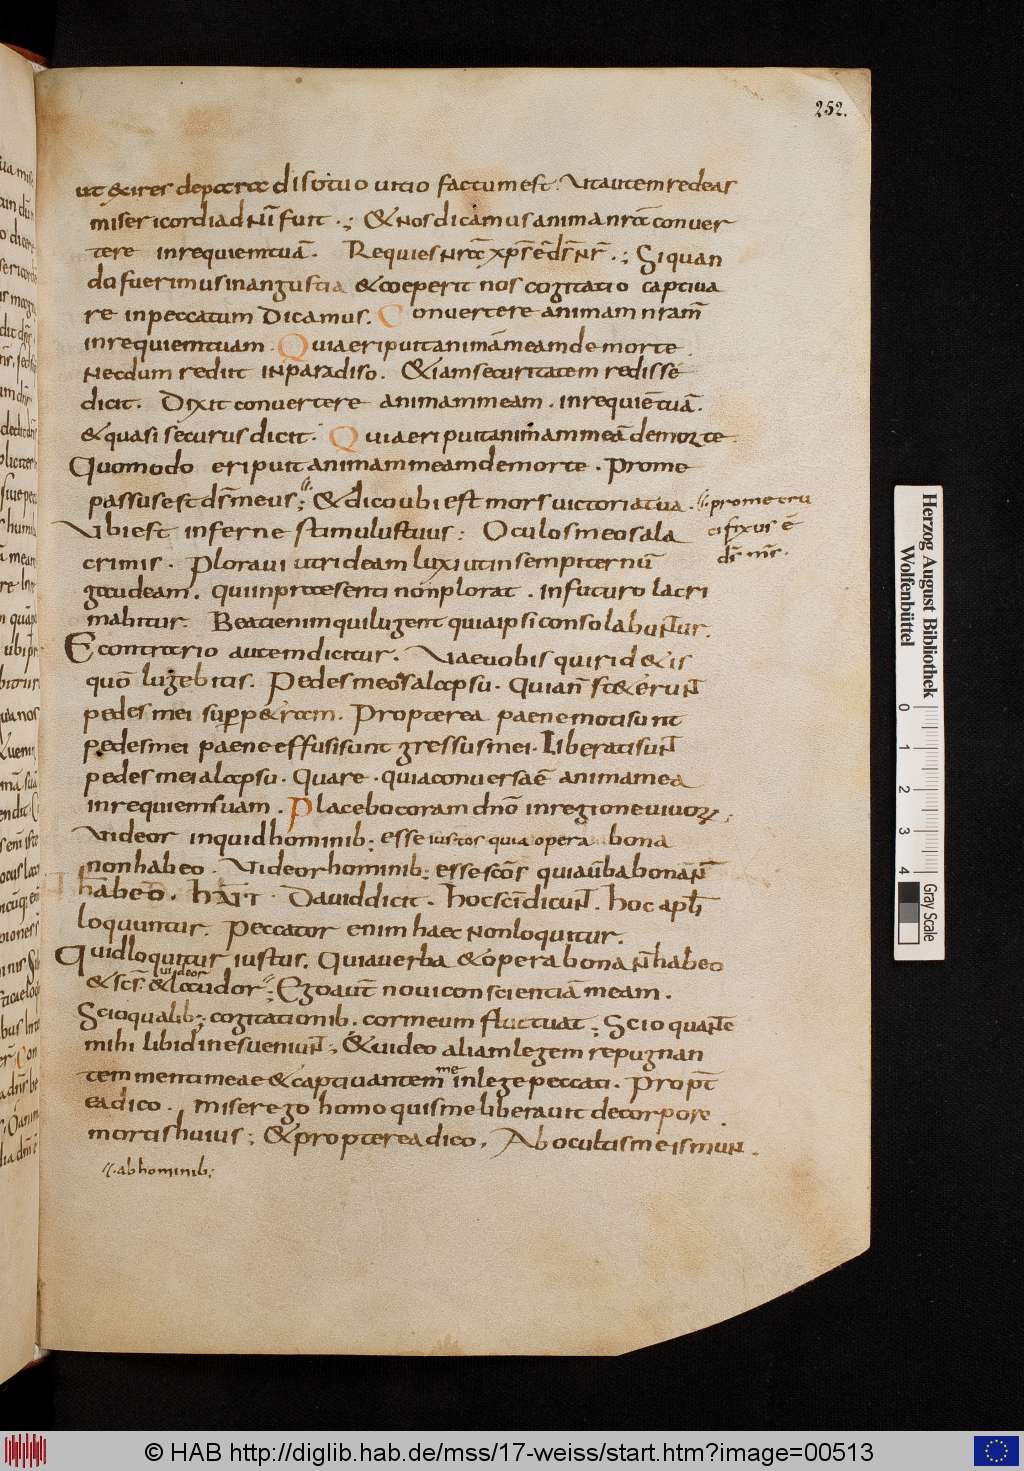 252.
ut & ires de paradiso tuo uitio factum est. Ut autem redeas
misericordia dn̄i fuit .; & nos dicamus anima nr̄a conuer
tere in requiem tuā. Requies nr̄a xp̄s ē dn̄s nr̄ .; Si quan
do fuerimus in angustia & coeperit nos cogitatio captiua
re in peccatum Dicamus. Conuertere animam nram̄
in requiem tuam. Quia eripuit animā meam de morte.
Necdum rediit in paradiso. & iam securitatem redisse
dicit. Dixit conuertere animam meam. in requiē tuā.
& quasi securus dicit. Quia eripuit animam meā de morte
Quomodo eripuit animam meam de morte. Pro me
passus est dn̄s meus; & dico ubi est mors uictoria tua.
pro me cru
cifixus ē
dn̄s m̄s.
Ubi est inferne stimulus tuus: Oculos meos a la
crimis. Ploraui ut rideam luxi ut in sempiternū
gaudeam. qui in praesenti non plorat. in futuro lacri
mabitur. Beati enim qui lugent quia ipsi consolabuntur.
E contrario autem dicitur. Uae uobis qui rid&is
quō lugebitis. Pedes meos a lapsu. Quia n̄ st&erunt
pedes mei super p&ram. Propterea paene moti sunt
pedes mei paene effusi sunt gressus mei. Liberati sunt
pedes mei a lapsu. Quare. quia conuersa ē anima mea
in requiem suam. Placebo coram dn̄o in regione uiuorum;
Uideor inquid hominib; esse iustos quia opera bona
non habeo. Uideor hominib; esse scōs quia ūba bona n̄
habeo. hait. Dauid dicit. hoc scī dicunt. hoc apl̄i
loquuntur. Peccator enim haec non loquitur.
Quid loquitur iustus. Quia uerba & opera bona n̄ habeo
uideor
& scs̄ & laudor; Ego aut̄ noui conscientiā meam.
Scio qualib; cogitationib. cor meum fluctuat; Scio quante
mihi libidines ueniunt; & uideo aliam legem repugnan
tem menti meae & captiuantem me in lege peccati. Propt̄
ea dico. miser ego homo quis me liberauit de corpore
mortis huius; & propterea dico. Ab ocultis meis mun
. ab hominib;
Herzog August Bibliothek
Wolfenbüttel
0 1 2 3 4
Gray Scale
© HAB http://diglib.hab.de/mss/17-weiss/start.htm?image=00513